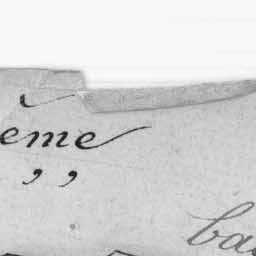 eme
,,
ba